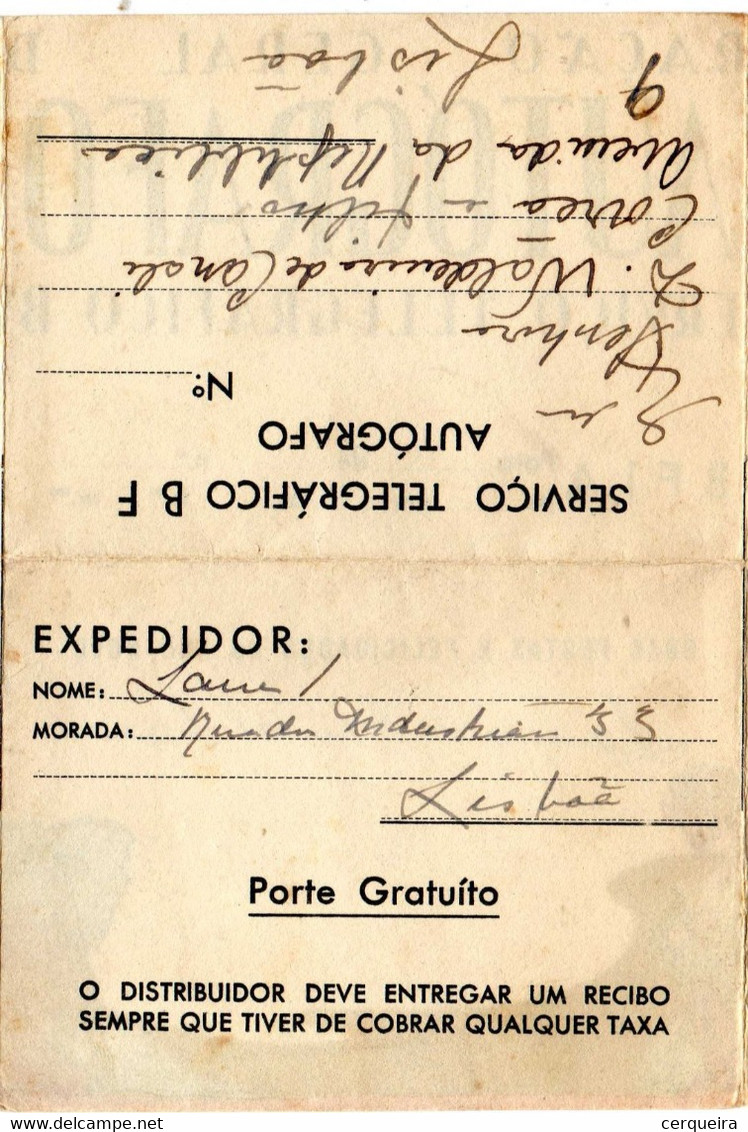 SERVIÇO TELEGRÁFICO B F
AUTÓGRAFO
Nº:
Senhor
D. Waldemiro de
Correa e Filho
Avenida da Republica
9
Lisboa
EXPEDIDOR:
NOME:
MORADA: 53
Lisboa
Porte Gratuíto
O DISTRIBUIDOR DEVE ENTREGAR UM RECIBO
SEMPRE QUE TIVER DE COBRAR QUALQUER TAXA
cerqueira